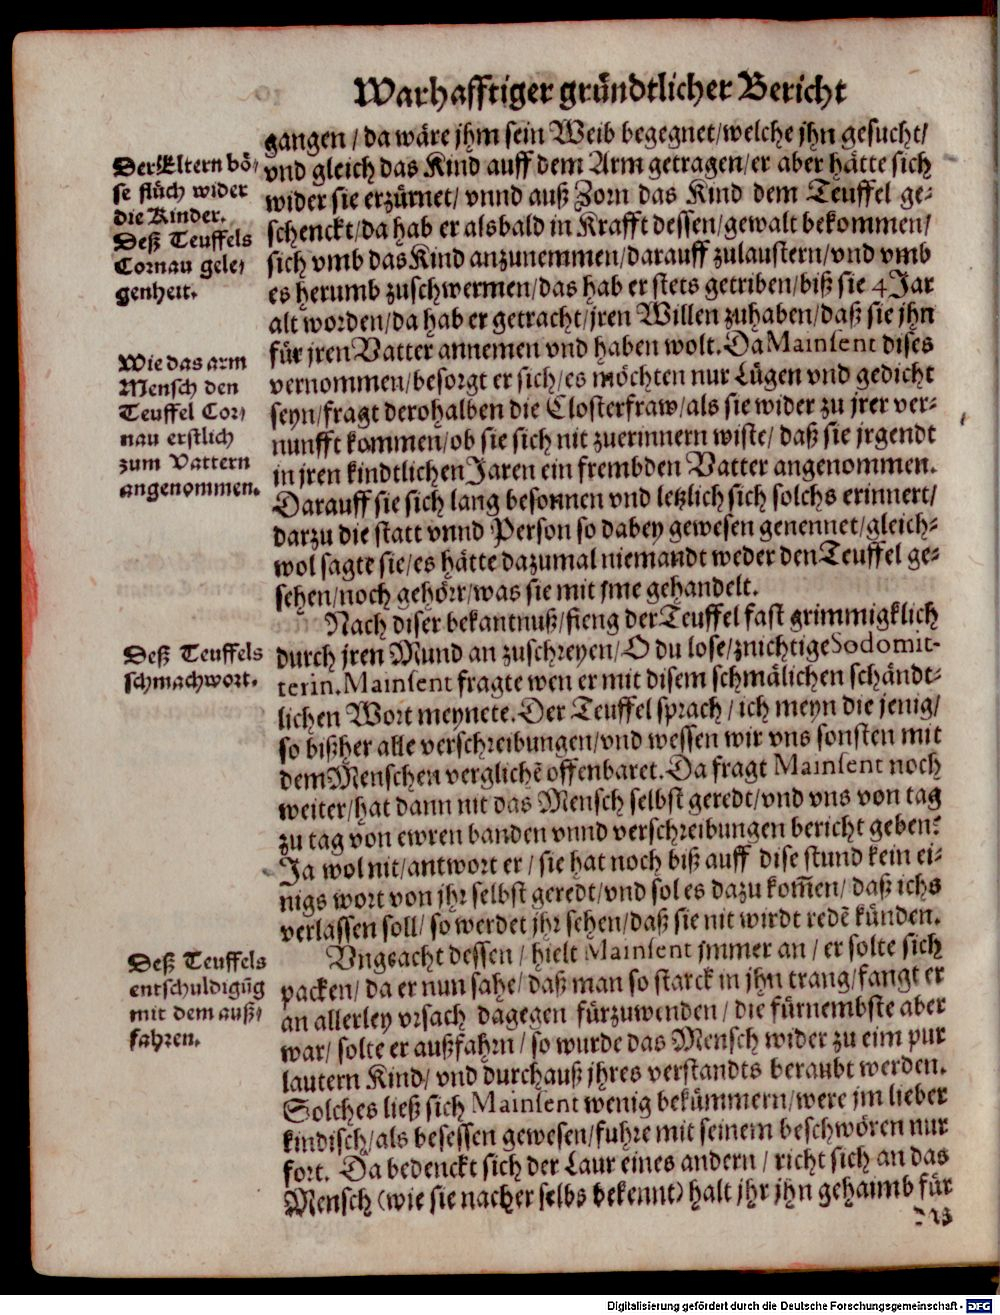 Warhafftiger gründtlicher Bericht
gangen / da wäre jhm sein Weib begegnet/welche jhn gesucht/
vnd gleich das Kind auff dem Arm getragen/er aber hätte sich
wider sie erzürnet/ vnnd auß Zorn das Kind dem Teuffel ge-
schenckt/da hab er alsbald in Krafft dessen/gewalt bekommen/
sich vmb das Kind anzunemmen/darauff zulaustern/vnd vmb
es herumb zuschwermen/das hab er stets getriben/biß sie 4 Jar
alt worden/da hab er getracht/jren Willen zuhaben/daß sie jhn
für jren Vatter annemen vnd haben wolt. Da Mainsent dises
vernommen/besorgt er sich/es möchten nur Lügen vnd gedicht
seyn/fragt derohalben die Closterfraw/als sie wider zu jrer ver-
nunfft kommen/ob sie sich nit zuerinnern wiste/ daß sie jrgendt
in jren kindtlichen Jaren ein frembden Vatter angenommen.
Darauff sie sich lang besonnen vnd letzlich sich solchs erinnert/
darzu die statt vnnd Person so dabey gewesen genennet/gleich-
wol sagte sie/es hätte dazumal niemandt weder den Teuffel ge-
sehen/noch gehört/was sie mit jme gehandelt.
Der Eltern bö-
se flüch wider
die Kinder.
Deß Teuffels
Cornau gele-
genheit.
Wie das arm
Mensch den
Teuffel Cor-
nau erstlich
zum Vattern
angenommen.
Nach diser bekantnuß/fieng der Teuffel fast grimmigklich
durch jren Mund an zuschreyen/O du lose/znichtige Sodomit-
terin. Mainsent fragte wen er mit disem schmälichen schändt-
lichen Wort meynete. Der Teuffel sprach / ich meyn die jenig/
so bißher alle verschreibungen/vnd wessen wir vns sonsten mit
dem Menschen verglichē offenbaret. Da fragt Mainsent noch
weiter/hat dann nit das Mensch selbst geredt/vnd vns von tag
zu tag von ewren banden vnnd verschreibungen bericht geben?
Ja wol nit/antwort er / sie hat noch biß auff dise stund kein ei-
nigs wort von jhr selbst geredt/vnd sol es dazu kom̃en/ daß ichs
verlassen soll/ so werdet jhr sehen/daß sie nit wirdt redē künden.
Deß Teuffels
schmachwort.
Vngeacht dessen / hielt Mainsent jmmer an / er solte sich
packen/ da er nun sahe/ daß man so starck in jhn trang/fangt er
an allerley vrsach dagegen fürzuwenden / die fürnembste aber
war/ solte er außfahrn / so wurde das Mensch wider zu eim pur
lautern Kind/ vnd durchauß jhres verstandts beraubt werden.
Solches ließ sich Mainsent wenig bekümmern/were jm lieber
kindisch/als besessen gewesen/fuhre mit seinem beschwören nur
fort. Da bedenckt sich der Laur eines andern / richt sich an das
Mensch (wie sie nacher selbs bekennt) halt jhr jhn gehaimb für
Deß Teuffels
entschuldigūg
mit dem auß-
fahren.
das
Digitalisierung gefördert durch die Deutsche Forschungsgemeinschaft - DFG